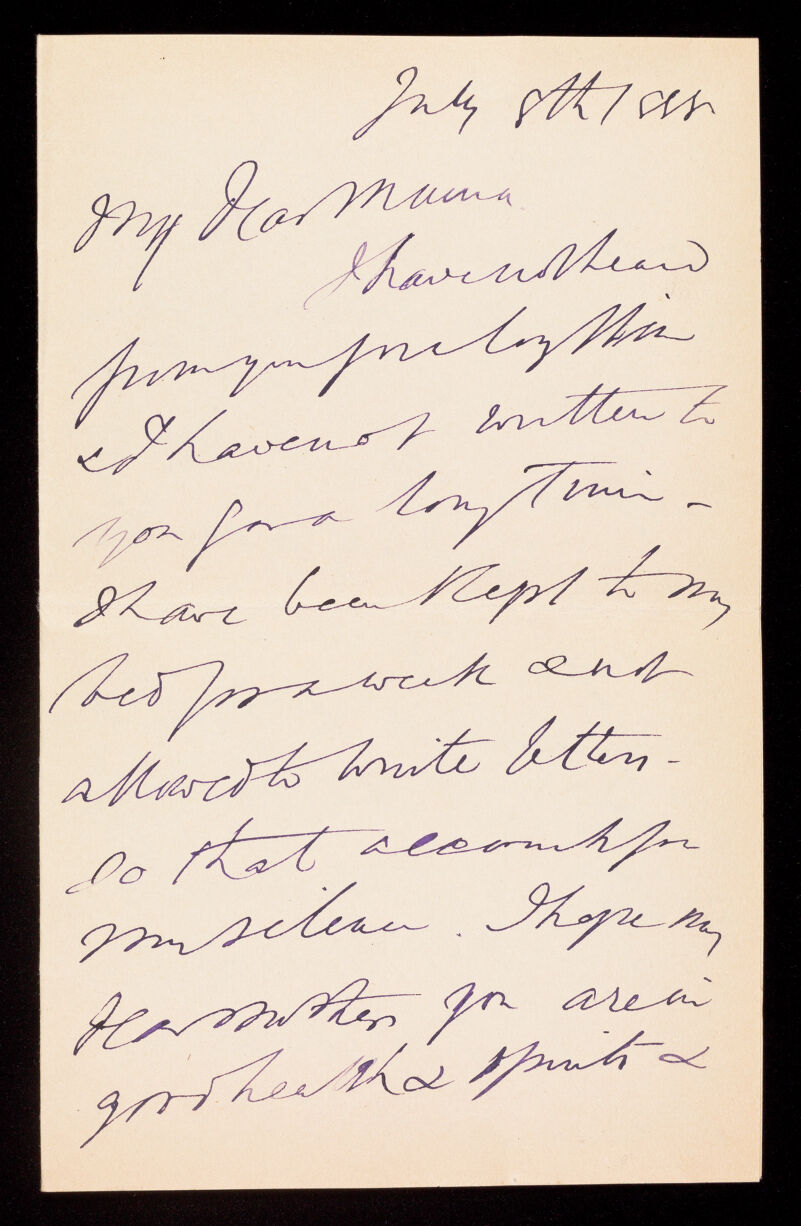 July 8th 188
My Dear Mama
I have not heard
from you for a long time
& I have not written to
you for a long Time -
I have been Kept to my
bed for a week & not
allowed to write letters -
So that accounts for
my silence. I hope my
Dear Mother you are in
good health & spirits &